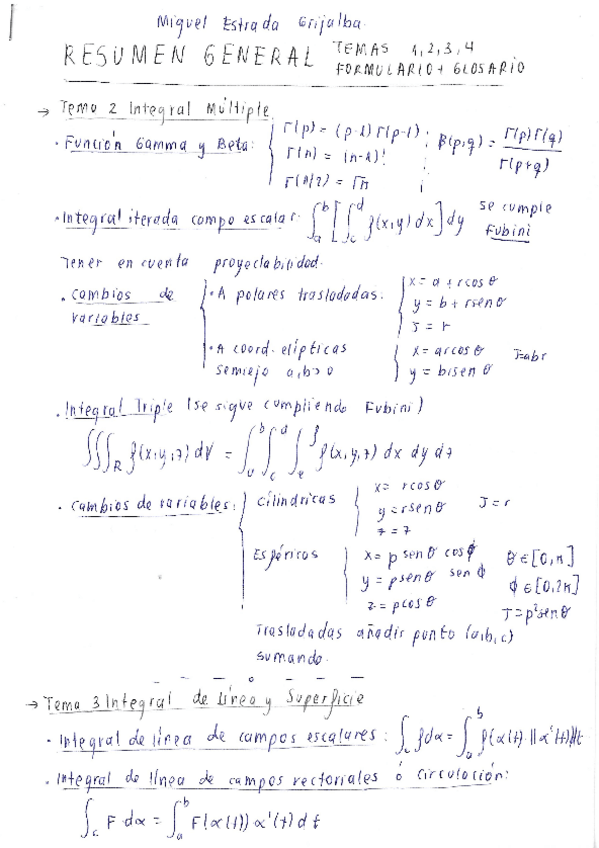 Miguel Estrada Grijalba.
RESUMEN GENERAL TEMAS 1,2,3,4
FORMULARIO + GLOSARIO
→ Tema 2 Integral Múltiple
· Función Gamma y Beta: { Γ(p) = (p-1) Γ(p-1) ; β(p,q) = Γ(p)Γ(q) / Γ(p+q)
Γ(n) = (n-1)!
Γ(1/2) = √π
· Integral iterada campo escalar: ∫_a^b [∫_c^d f(x,y) dx] dy se cumple Fubini
Tener en cuenta proyectabilidad.
· Cambios de variables { · A polares trasladadas: { x = a + r cos θ
y = b + r sen θ
J = r
· A coord. elípticas semieje a,b>0 { x = a r cos θ J=abr
y = b r sen θ
· Integral Triple (se sigue cumpliendo Fubini)
∭_R f(x,y,z) dV = ∫_a^b ∫_c^d ∫_e^f f(x,y,z) dx dy dz
· Cambios de variables: { Cilíndricas { x = r cos θ
y = r sen θ J = r
z = z
Esféricas { x = ρ sen θ cos ϕ θ ∈ [0,π]
y = ρ sen θ sen ϕ ϕ ∈ [0,2π]
z = ρ cos θ J = ρ² sen θ
Trasladadas añadir punto (a,b,c)
sumando.
→ Tema 3 Integral de Línea y Superficie
· Integral de línea de campos escalares: ∫_c f dα = ∫_a^b f(α(t)) · ||α'(t)|| dt
· Integral de línea de campos vectoriales ó circulación:
∫_c F · dα = ∫_a^b F(α(t)) α'(t) dt